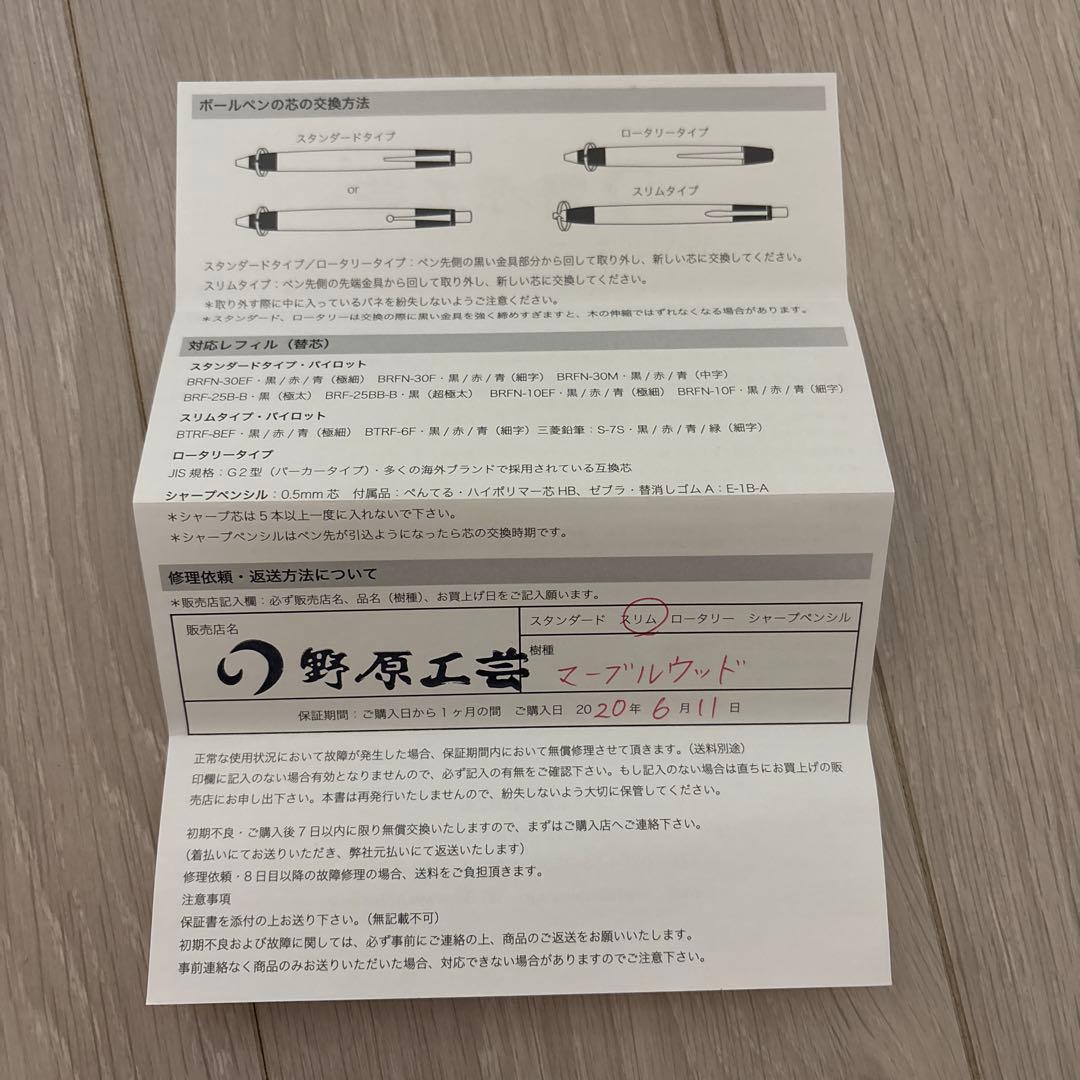 ボールペンの芯の交換方法
スタンダードタイプ
ロータリータイプ
or
スリムタイプ
スタンダードタイプ／ロータリータイプ：ペン先側の黒い金具部分から回して取り外し、新しい芯に交換してください。
スリムタイプ：ペン先側の先端金具から回して取り外し、新しい芯に交換してください。
＊取り外す際に中に入っているバネを紛失しないようご注意ください。
＊スタンダード、ロータリーは交換の際に黒い金具を強く締めすぎますと、木の伸縮ではずれなくなる場合があります。
対応レフィル（替芯）
スタンダードタイプ・パイロット
BRFN-30EF・黒/赤/青（極細） BRFN-30F・黒/赤/青（細字） BRFN-30M・黒/赤/青（中字）
BRF-25B-B・黒（極太） BRF-25BB-B・黒（超極太） BRFN-10EF・黒/赤/青（極細） BRFN-10F・黒/赤/青（細字）
スリムタイプ・パイロット
BTRF-8EF・黒/赤/青（極細） BTRF-6F・黒/赤/青（細字）三菱鉛筆：S-7S・黒/赤/青/緑（細字）
ロータリータイプ
JIS規格：G2型（パーカータイプ）・多くの海外ブランドで採用されている互換芯
シャープペンシル：0.5mm芯 付属品：ぺんてる・ハイポリマー芯HB、ゼブラ・替消しゴムA：E-1B-A
＊シャープ芯は5本以上一度に入れないで下さい。
＊シャープペンシルはペン先が引込ようになったら芯の交換時期です。
修理依頼・返送方法について
＊販売店記入欄：必ず販売店名、品名（樹種）、お買上げ日をご記入願います。
販売店名
野原工芸
スタンダード スリム ロータリー シャープペンシル
樹種
マーブルウッド
保証期間：ご購入日から1ヶ月の間 ご購入日 2020年6月11日
正常な使用状況において故障が発生した場合、保証期間内において無償修理させて頂きます。（送料別途）
印欄に記入のない場合有効となりませんので、必ず記入の有無をご確認下さい。もし記入のない場合は直ちにお買上げの販
売店にお申し出下さい。本書は再発行いたしませんので、紛失しないよう大切に保管してください。
初期不良・ご購入後7日以内に限り無償交換いたしますので、まずはご購入店へご連絡下さい。
（着払いにてお送りいただき、弊社元払いにて返送いたします）
修理依頼・8日目以降の故障修理の場合、送料をご負担頂きます。
注意事項
保証書を添付の上お送り下さい。（無記載不可）
初期不良および故障に関しては、必ず事前にご連絡の上、商品のご返送をお願いいたします。
事前連絡なく商品のみお送りいただいた場合、対応できない場合がありますのでご注意下さい。